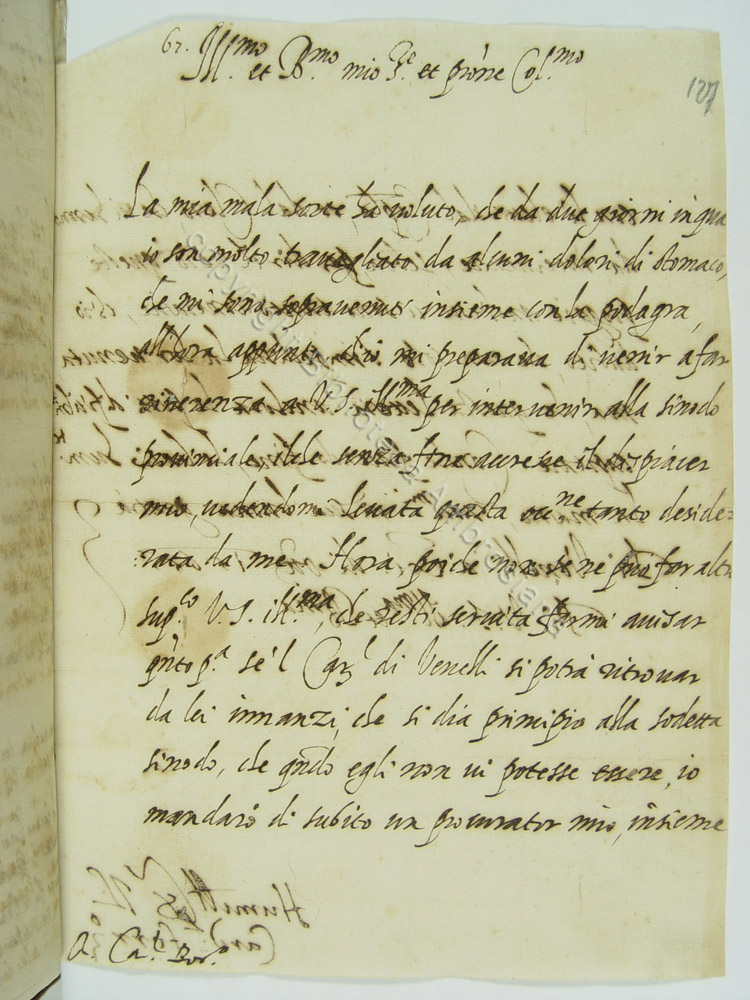 62. Ill.mo et R.mo mio S.re et prōne Col.mo
127
La mia mala sorte ha voluto, che da due giorni in qua
io son molto travagliato da alcuni dolori di stomaco,
che mi sono sopravenuti insieme con la podagra,
all'hora appunto ch'io mi preparava di venir a far
riverenza a V. S. Ill.ma per intervenir alla sinodo
provinciale, il che senza fine accresce il dispiacer
mio, vedendomi levata questa occ.ne tanto deside-
rata da me. Hora, poiche non se ne può far altro
sup.co V. S. ill.ma, che resti servita farmi avisar
qnto p.a se'l Car.l di Vercelli si potrà ritrovar
da lei innanzi, che si dia principio alla sodetta
sinodo, che qndo egli non vi potesse essere, io
mandarò di subito un procurator mio, insieme
A. Ca.l Bor.o